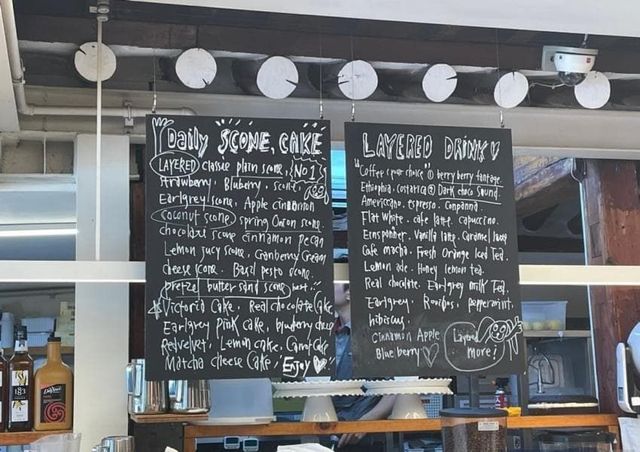 Daily SCONE, CAKE
LAYERED classic plain scone. No 1
strawberry. Bluberry. scone
Earlgrey scone, Apple cinnamon
coconut scone, spring Onion scone,
chocolate scone cinnamon pecan
Lemon juicy scone, Cranberry Cream
cheese scone. Basil pesto scone.
pretzel butter sand scone
Victoria Cake, Real chocolate Cake,
Earlgrey Pink cake, blueberry cheese
Redvelvet, Lemon cake. Carrot cake
Matcha cheese Cake! Enjoy
LAYERED DRINK
Coffee (your choice ① berry berry fantage
Ethiophia. costarica ② Dark choco sound
Americano. espresso. Conpanna
Flat white. cafe latte. capuccino.
Einspanner. Vanilla latte. Caramel
Cafe mocha. Fresh Orange Iced Tea.
Lemon ade. Honey lemon tea.
Real chocolate. Earlgrey Milk Tea.
Earlgrey. Rooibos. peppermint.
hibiscus.
Cinnamon Apple
Blueberry
Layered more!